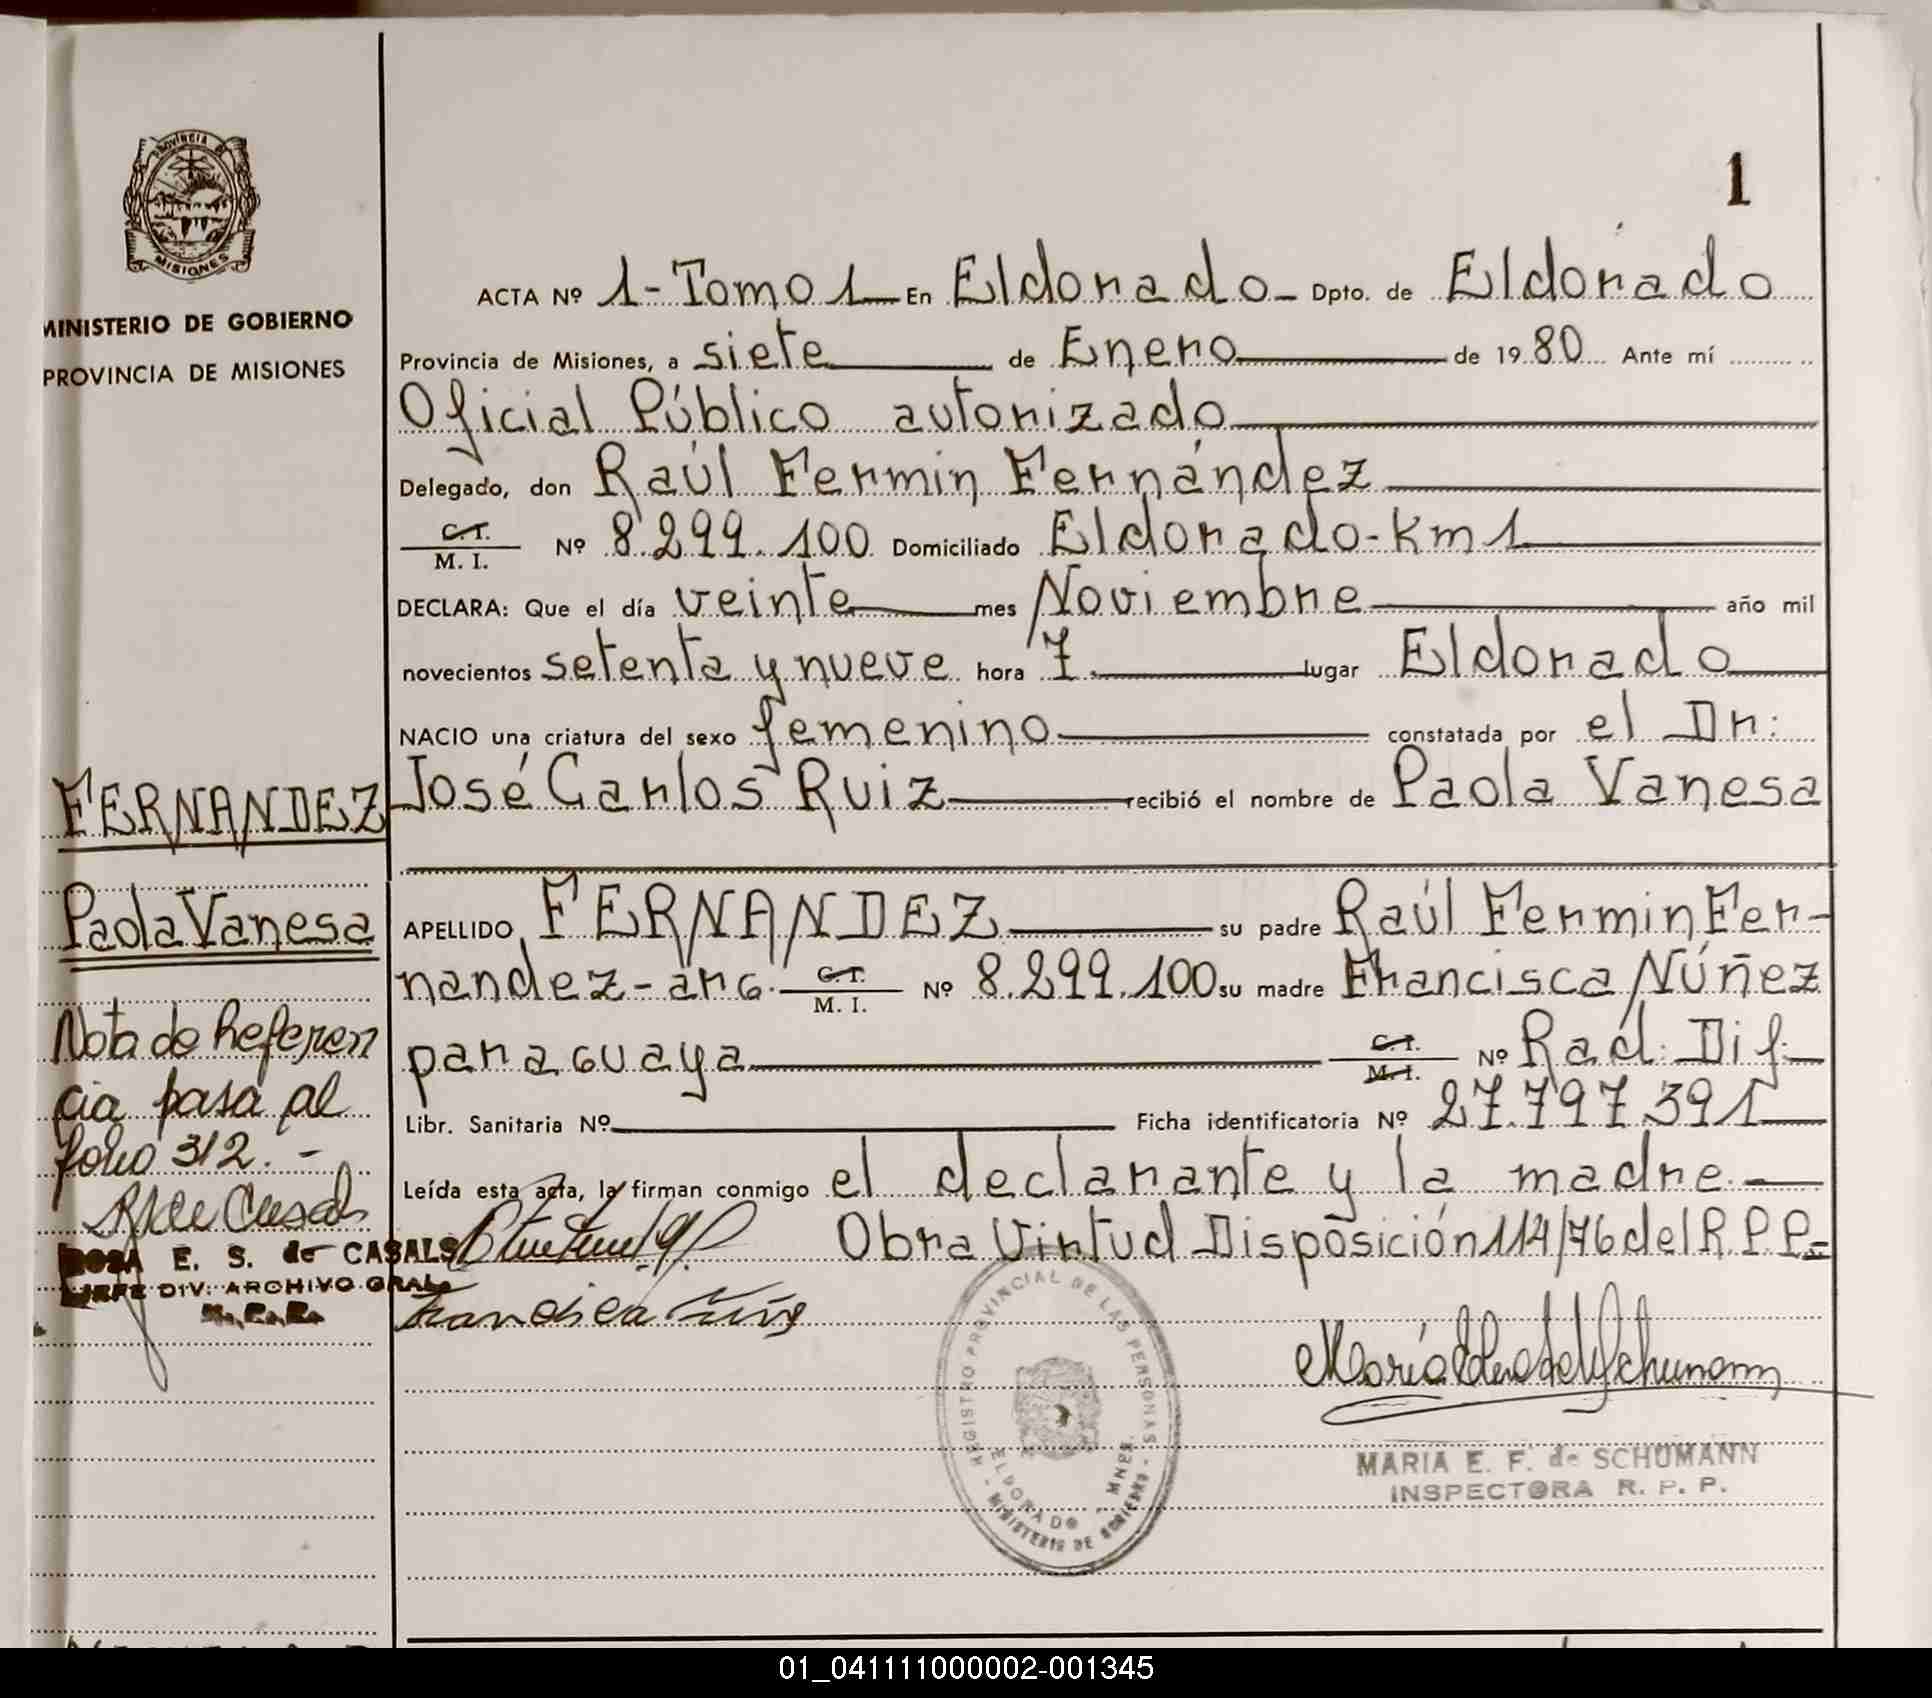 PROVINCIA DE
MISIONES
MINISTERIO DE GOBIERNO
PROVINCIA DE MISIONES
1
ACTA Nº 1-Tomo 1 En Eldorado Dpto. de Eldorado
Provincia de Misiones, a siete de Enero de 1980 Ante mí
Oficial Público autorizado
Delegado, don Raúl Fermin Fernández
C.I.
M. I. Nº 8.299.100 Domiciliado Eldorado-Km 1
DECLARA: Que el día veinte mes Noviembre año mil
novecientos setenta y nueve hora 7. lugar Eldorado
NACIO una criatura del sexo femenino constatada por el Dr:
José Carlos Ruiz recibió el nombre de Paola Vanesa
APELLIDO FERNANDEZ su padre Raúl Fermin Fer-
nandez-arg. C.I. M. I. Nº 8.299.100 su madre Francisca Núñez
paraguaya C.I. M.I. Nº Rad. Dif.
Libr. Sanitaria Nº Ficha identificatoria Nº 27.797.391
Leída esta acta, la firman conmigo el declarante y la madre.
Obra Virtud Disposición 114/76 del R.P.P.
Francisca
FERNANDEZ
Paola Vanesa
Nota de Referen
cia pasa al
folio 312.-
ROSA E. S. de CASALS
JEFE DIV. ARCHIVO GRAL.
REGISTRO PROVINCIAL DE LAS PERSONAS
ELDORADO - MNES.
MINISTERIO DE GOBIERNO
MARIA E. F. de SCHUMANN
INSPECTORA R. P. P.
01_041111000002-001345